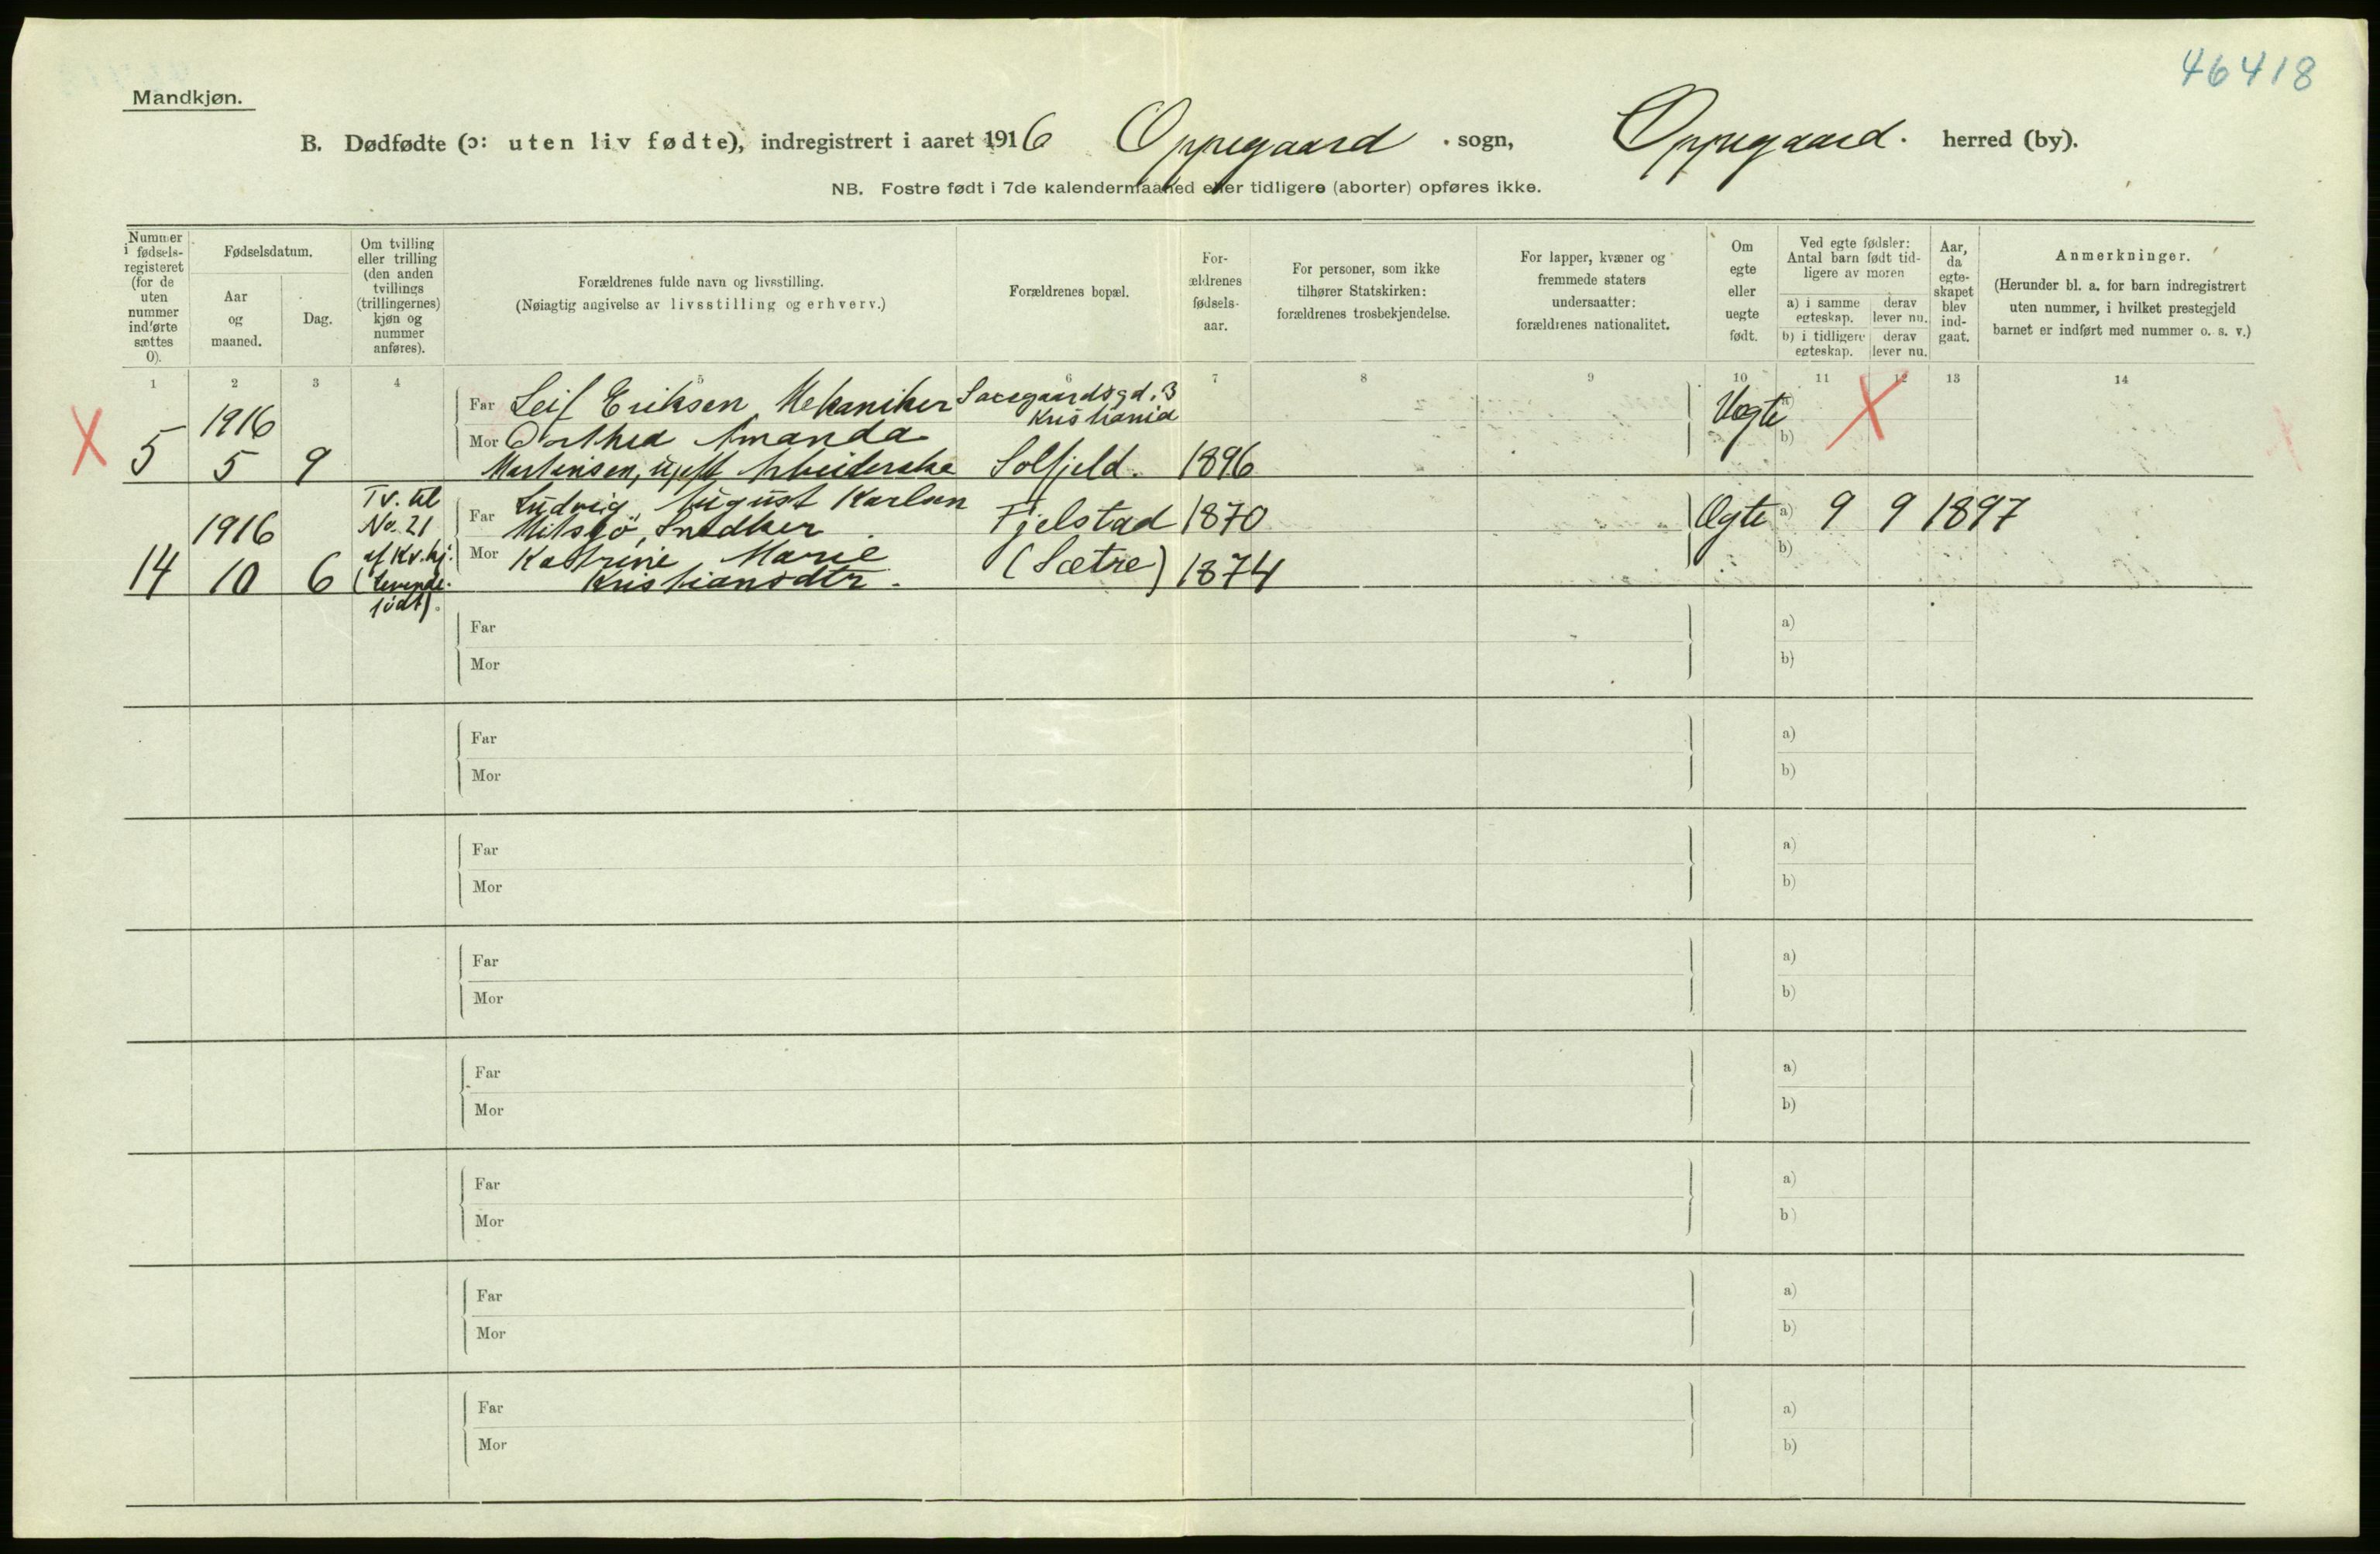 46418
Mandkjøn.
B. Dødfødte (ɔ: uten liv fødte), indregistrert i aaret 1916 Oppegaard sogn, Oppegaard. herred (by).
NB. Fostre født i 7de kalendermaaned eller tidligere (aborter) opføres ikke.
Nummer i fødsels-registeret (for de uten nummer indførte sættes 0).
Fødselsdatum.
Aar og maaned.
Dag.
Om tvilling eller trilling (den anden tvillings (trillingernes) kjøn og nummer anføres).
Forældrenes fulde navn og livsstilling.
(Nøiagtig angivelse av livsstilling og erhverv.)
Forældrenes bopæl.
For-ældrenes fødsels-aar.
For personer, som ikke tilhører Statskirken: forældrenes trosbekjendelse.
For lapper, kvæner og fremmede staters undersaatter: forældrenes nationalitet.
Om egte eller uegte født.
Ved egte fødsler: Antal barn født tid-ligere av moren
a) i samme egteskap.
derav lever nu.
b) i tidligere egteskap.
derav lever nu.
Aar, da egte-skapet blev ind-gaat.
Anmerkninger.
(Herunder bl. a. for barn indregistrert uten nummer, i hvilket prestegjeld barnet er indført med nummer o. s. v.)
1 2 3 4 5 6 7 8 9 10 11 12 13 14
X
Far Leif Eriksen, Mekaniker
3
Kristiania
1916
Mor Dorthea Amanda
Uegte a)
b)
X
5 5 9 Martinsen, Arbeiderske Solfjeld. 1896
Tv. til
No. 21
af Kv.kj.
(Levende-
født).
1916
Far Ludvig August Karlsen
Snedker
Fjelstad 1870
Ægte a) 9 9 1897
b)
14 10 6
Mor Katrine Marie
Kristiansdtr.
(Sætre) 1874
Far a)
Mor b)
Far a)
Mor b)
Far a)
Mor b)
Far a)
Mor b)
Far a)
Mor b)
Far a)
Mor b)
Far a)
Mor b)
Far a)
Mor b)